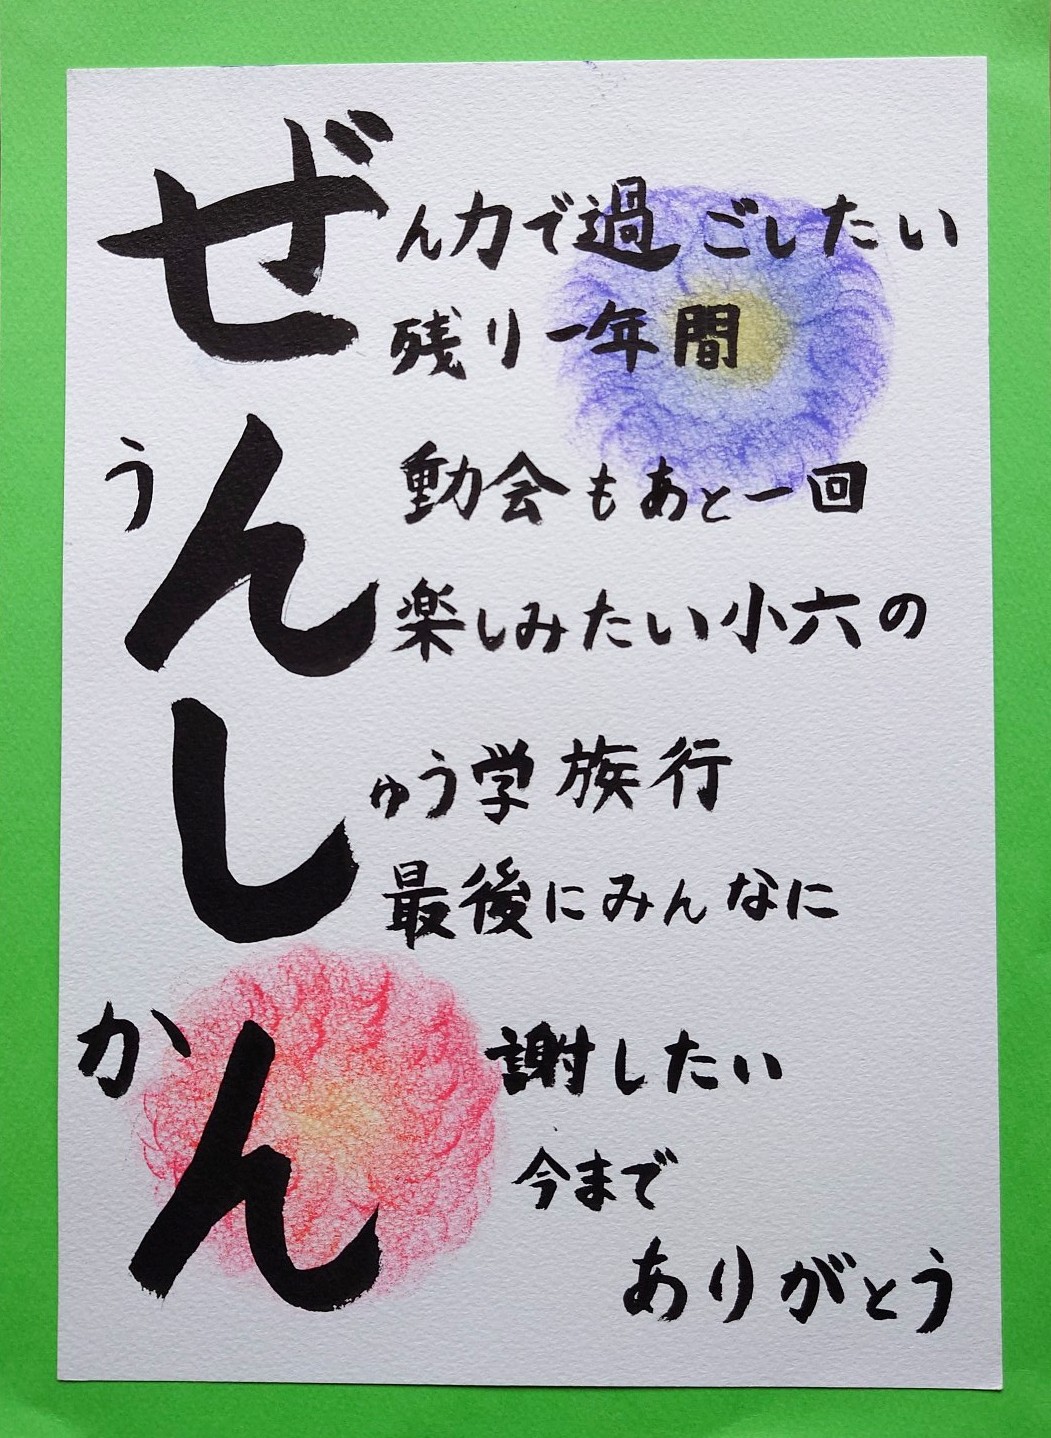 ぜん力で過ごしたい
残り一年間
うん動会もあと一回
楽しみたい小六の
しゅう学族行
最後にみんなに
かん謝したい
今まで
ありがとう